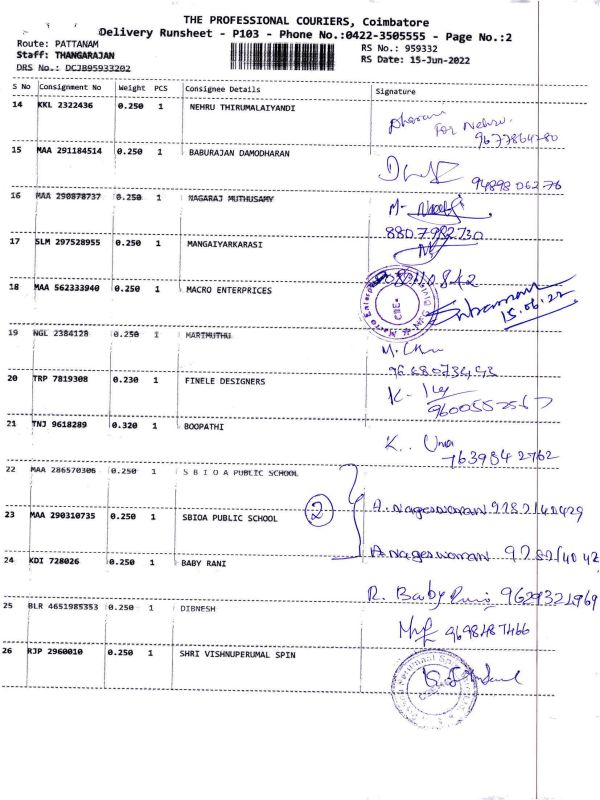 THE PROFESSIONAL COURIERS, Coimbatore
Delivery Runsheet - P103 - Phone No.:0422-3505555 - Page No.:2
Route: PATTANAM RS No.: 959332
Staff: THANGARAJAN RS Date: 15-Jun-2022
DRS No.: DCJB95933202
S No Consignment No Weight PCS Consignee Details Signature
14 KKL 2322436 0.250 1 NEHRU THIRUMALAIYANDI
For Nehru.
9677864280
15 MAA 291184514 0.250 1 BABURAJAN DAMODHARAN
94898 06276
16 MAA 290878737 0.250 1 NAGARAJ MUTHUSAMY
M.
8807982730
17 SLM 297528955 0.250 1 MANGAIYARKARASI
18 MAA 562333940 0.250 1 MACRO ENTERPRICES
15.06.22
19 NGL 2384128 0.250 1 MARIMUTHU
20 TRP 7819308 0.230 1 FINELE DESIGNERS
K.
21 TNJ 9618289 0.320 1 BOOPATHI
K. Uma
7639842762
22 MAA 286570306 0.250 1 S B I O A PUBLIC SCHOOL
23 MAA 290310735 0.250 1 SBIOA PUBLIC SCHOOL
2
A. Nageswaran
A. Nageswaran
24 KDI 728026 0.250 1 BABY RANI
R. Baby Rani 9629321969
25 BLR 4651985353 0.250 1 DIBNESH
9698487466
26 RJP 2960010 0.250 1 SHRI VISHNUPERUMAL SPIN